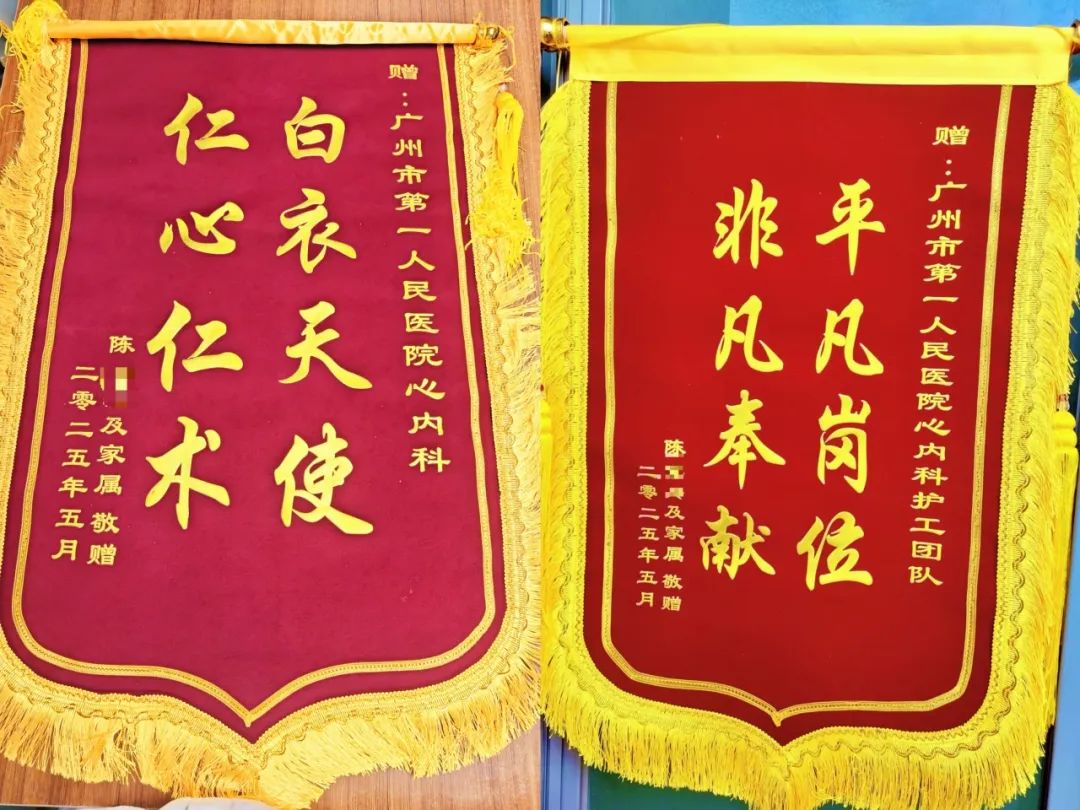 赠：广州市第一人民医院心内科
白衣天使
仁心仁术
陈
及家属 敬赠
二零二五年五月
赠：广州市第一人民医院心内科护工团队
平凡岗位
非凡奉献
陈
及家属 敬赠
二零二五年五月